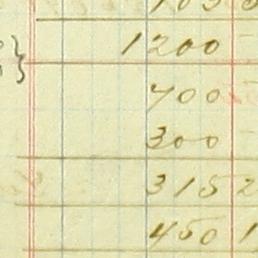 1200
700
300
315 2
450 1